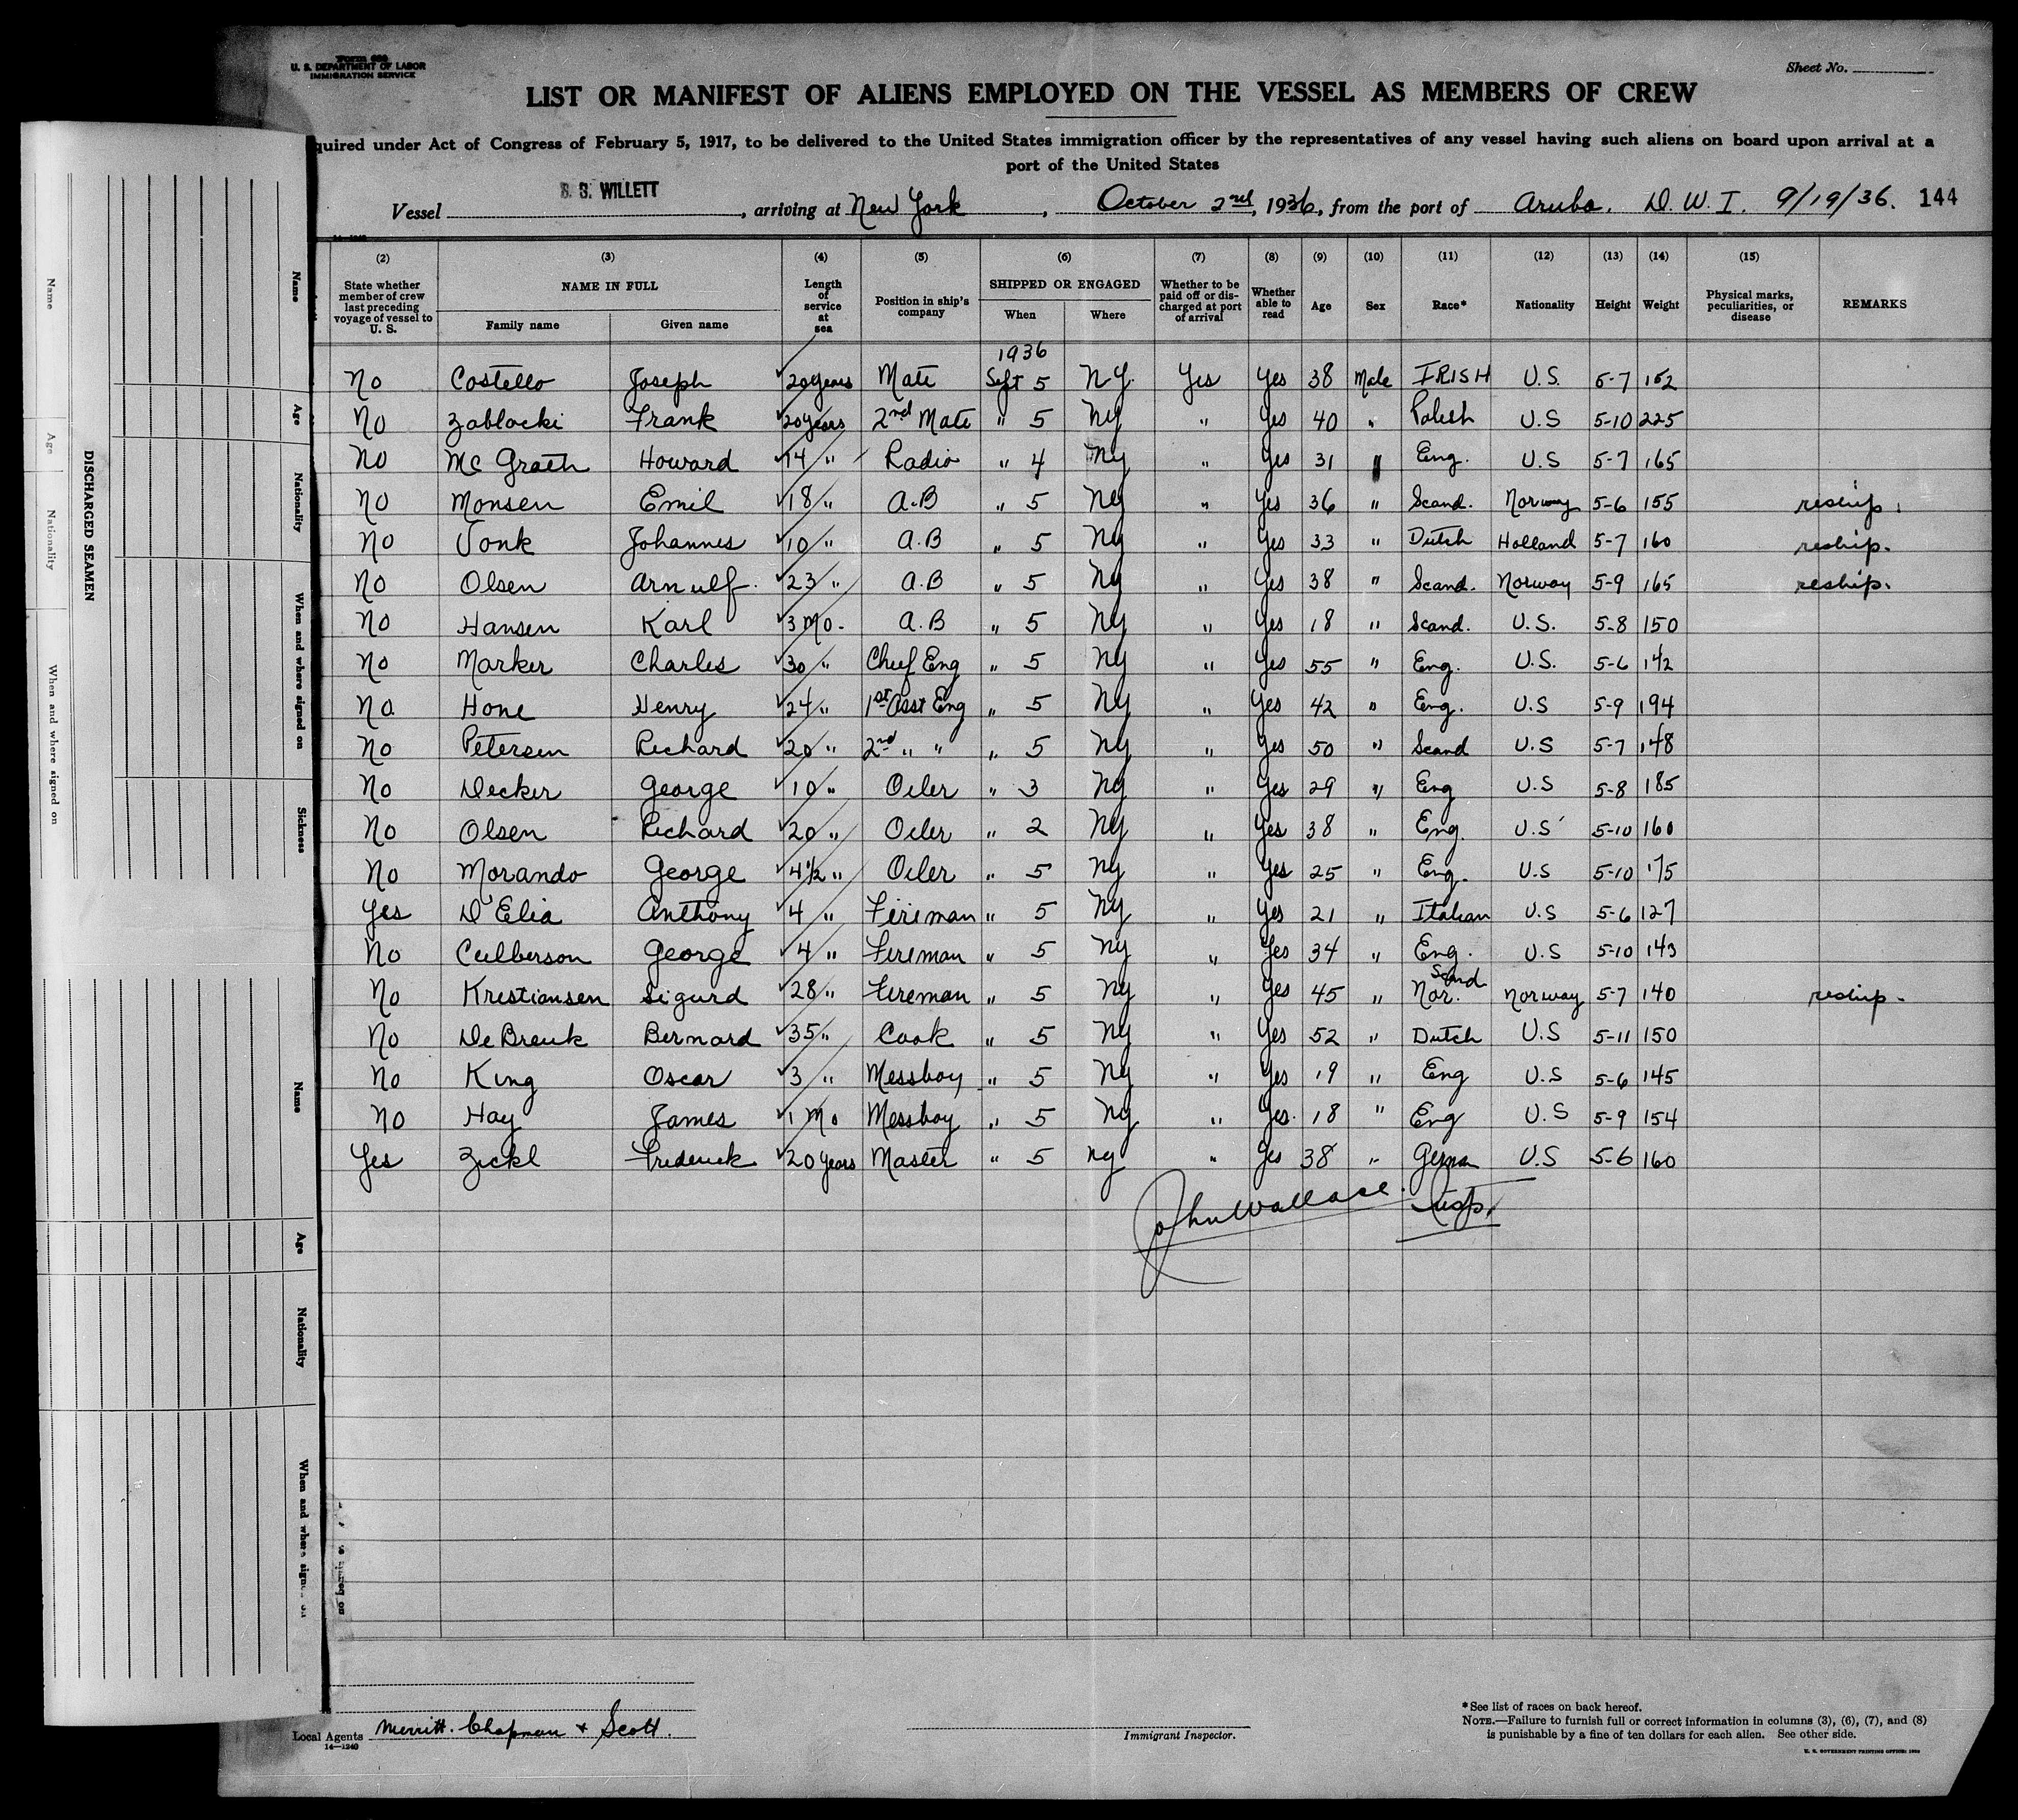 Form 689
U. S. DEPARTMENT OF LABOR
IMMIGRATION SERVICE
Sheet No.
LIST OR MANIFEST OF ALIENS EMPLOYED ON THE VESSEL AS MEMBERS OF CREW
quired under Act of Congress of February 5, 1917, to be delivered to the United States immigration officer by the representatives of any vessel having such aliens on board upon arrival at a
port of the United States
Vessel S. S. WILLETT, arriving at New York, October 2nd, 1936, from the port of Aruba. D. W. I. 9/19/36. 144
(2) (3) (4) (5) (6) (7) (8) (9) (10) (11) (12) (13) (14) (15)
State whether member of crew last preceding voyage of vessel to U. S.
NAME IN FULL
Family name Given name
Length of service at sea
Position in ship's company
SHIPPED OR ENGAGED
When Where
Whether to be paid off or discharged at port of arrival
Whether able to read
Age
Sex
Race*
Nationality
Height
Weight
Physical marks, peculiarities, or disease
REMARKS
1936
No Costello Joseph 20 years Mate Sept 5 N.Y. Yes Yes 38 Male IRISH U.S. 5-7 152
No Zablocki Frank 20 years 2nd Mate " 5 NY " Yes 40 " Polish U.S 5-10 225
No Mc Grath Howard 14 " Radio " 4 NY " Yes 31 " Eng. U.S 5-7 165
No Monsen Emil 18 " A.B " 5 NY " Yes 36 " Scand. Norway 5-6 155 reship.
No Vonk Johannes 10 " A.B " 5 NY " Yes 33 " Dutch Holland 5-7 160 reship.
No Olsen Arnulf. 23 " A.B " 5 NY " Yes 38 " Scand. Norway 5-9 165 reship.
No Hansen Karl 3 Mo. A.B " 5 NY " Yes 18 " Scand. U.S. 5-8 150
No Marker Charles 30 " Chief Eng " 5 NY " Yes 55 " Eng. U.S. 5-6 142
No Hone Henry 24 " 1st Asst Eng " 5 NY " Yes 42 " Eng. U.S 5-9 194
No Petersen Richard 20 " 2nd " " " 5 NY " Yes 50 " Scand U.S 5-7 148
No Decker George 10 " Oiler " 3 NY " Yes 29 " Eng U.S 5-8 185
No Olsen Richard 20 " Oiler " 2 NY " Yes 38 " Eng. U.S 5-10 160
No Morando George 4½ " Oiler " 5 NY " Yes 25 " Eng. U.S 5-10 175
Yes D'Elia Anthony 4 " Fireman " 5 NY " Yes 21 " Italian U.S 5-6 127
No Culberson George 4 " Fireman " 5 NY " Yes 34 " Eng. U.S 5-10 143
No Kristiansen Sigurd 28 " Fireman " 5 NY " Yes 45 " Nor. Scand Norway 5-7 140 reship.
No De Breuk Bernard 35 " Cook " 5 NY " Yes 52 " Dutch U.S 5-11 150
No King Oscar 3 " Messboy " 5 NY " Yes 19 " Eng U.S 5-6 145
No Hay James 1 Mo Messboy " 5 NY " Yes. 18 " Eng U.S 5-9 154
Yes Zickl Frederick 20 years Master " 5 NY " Yes 38 " German U.S 5-6 160
John Wallace. Insp.
Local Agents Merritt. Chapman & Scott.
14—1240
Immigrant Inspector.
*See list of races on back hereof.
NOTE.—Failure to furnish full or correct information in columns (3), (6), (7), and (8)
is punishable by a fine of ten dollars for each alien. See other side.
DISCHARGED SEAMEN
Name
Age
Nationality
When and where signed on
Name
Age
Nationality
When and where signed on
Sickness
Name
Age
Nationality
When and where signed on